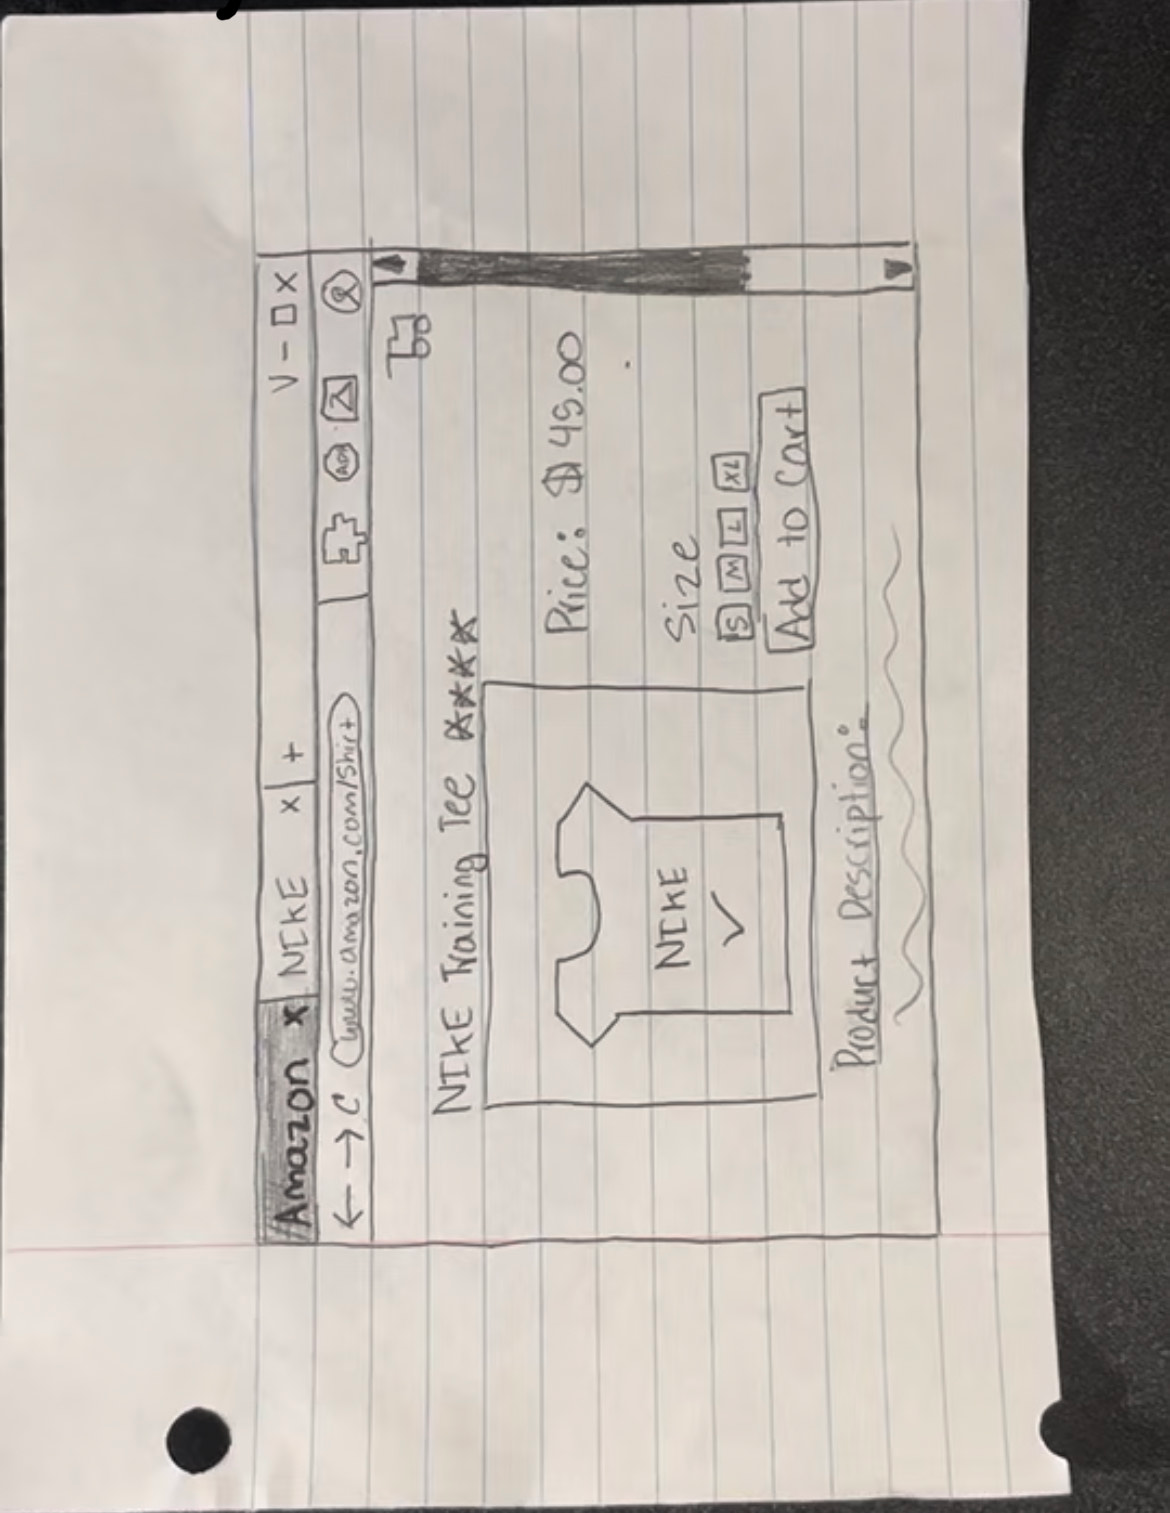 Amazon x NIKE x +
V - □ X
← → C www.amazon.com/Shirt
ADP
NIKE Training Tee ★★★★
Price: $ 45.00
NIKE
Size
S M L XL
Add to Cart
Product Description: